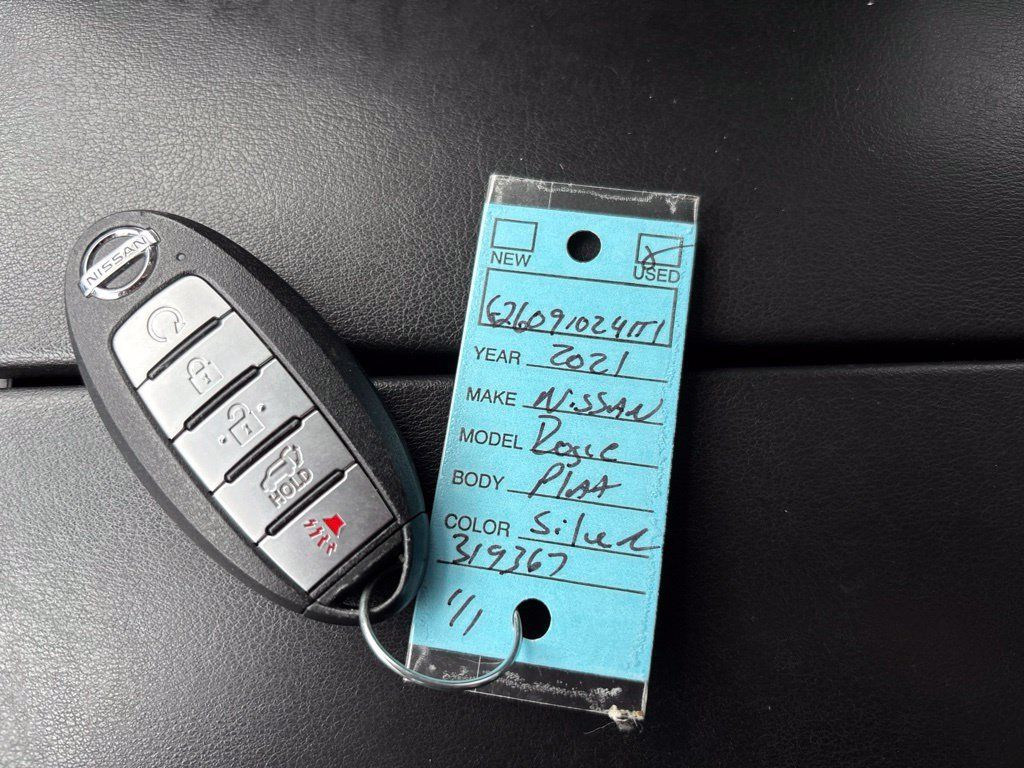 NISSAN
HOLD
NEW
USED
YEAR 2021
MAKE NiSSAN
MODEL Rogue
BODY
COLOR Silver
319367
1/1